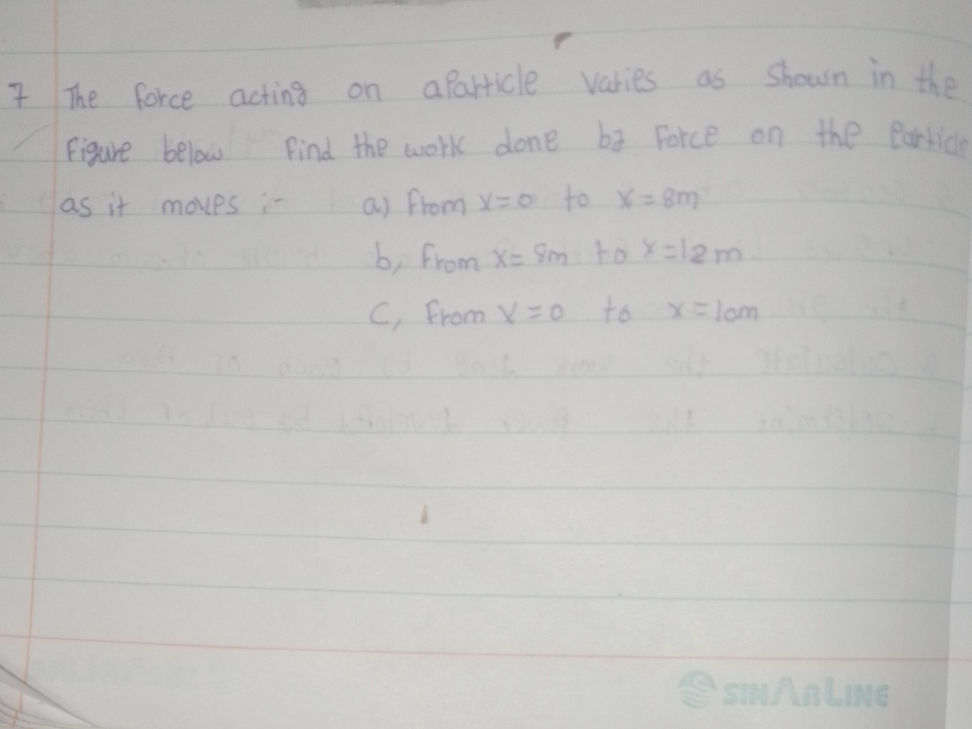 7 The force acting on a Particle varies as shown in the
Figure below Find the work done by Force on the Particle
as it moves :- a) From x=0 to x=8m
b, From x=8m to x=12m
C, From x=0 to x=10m
SINARLINE